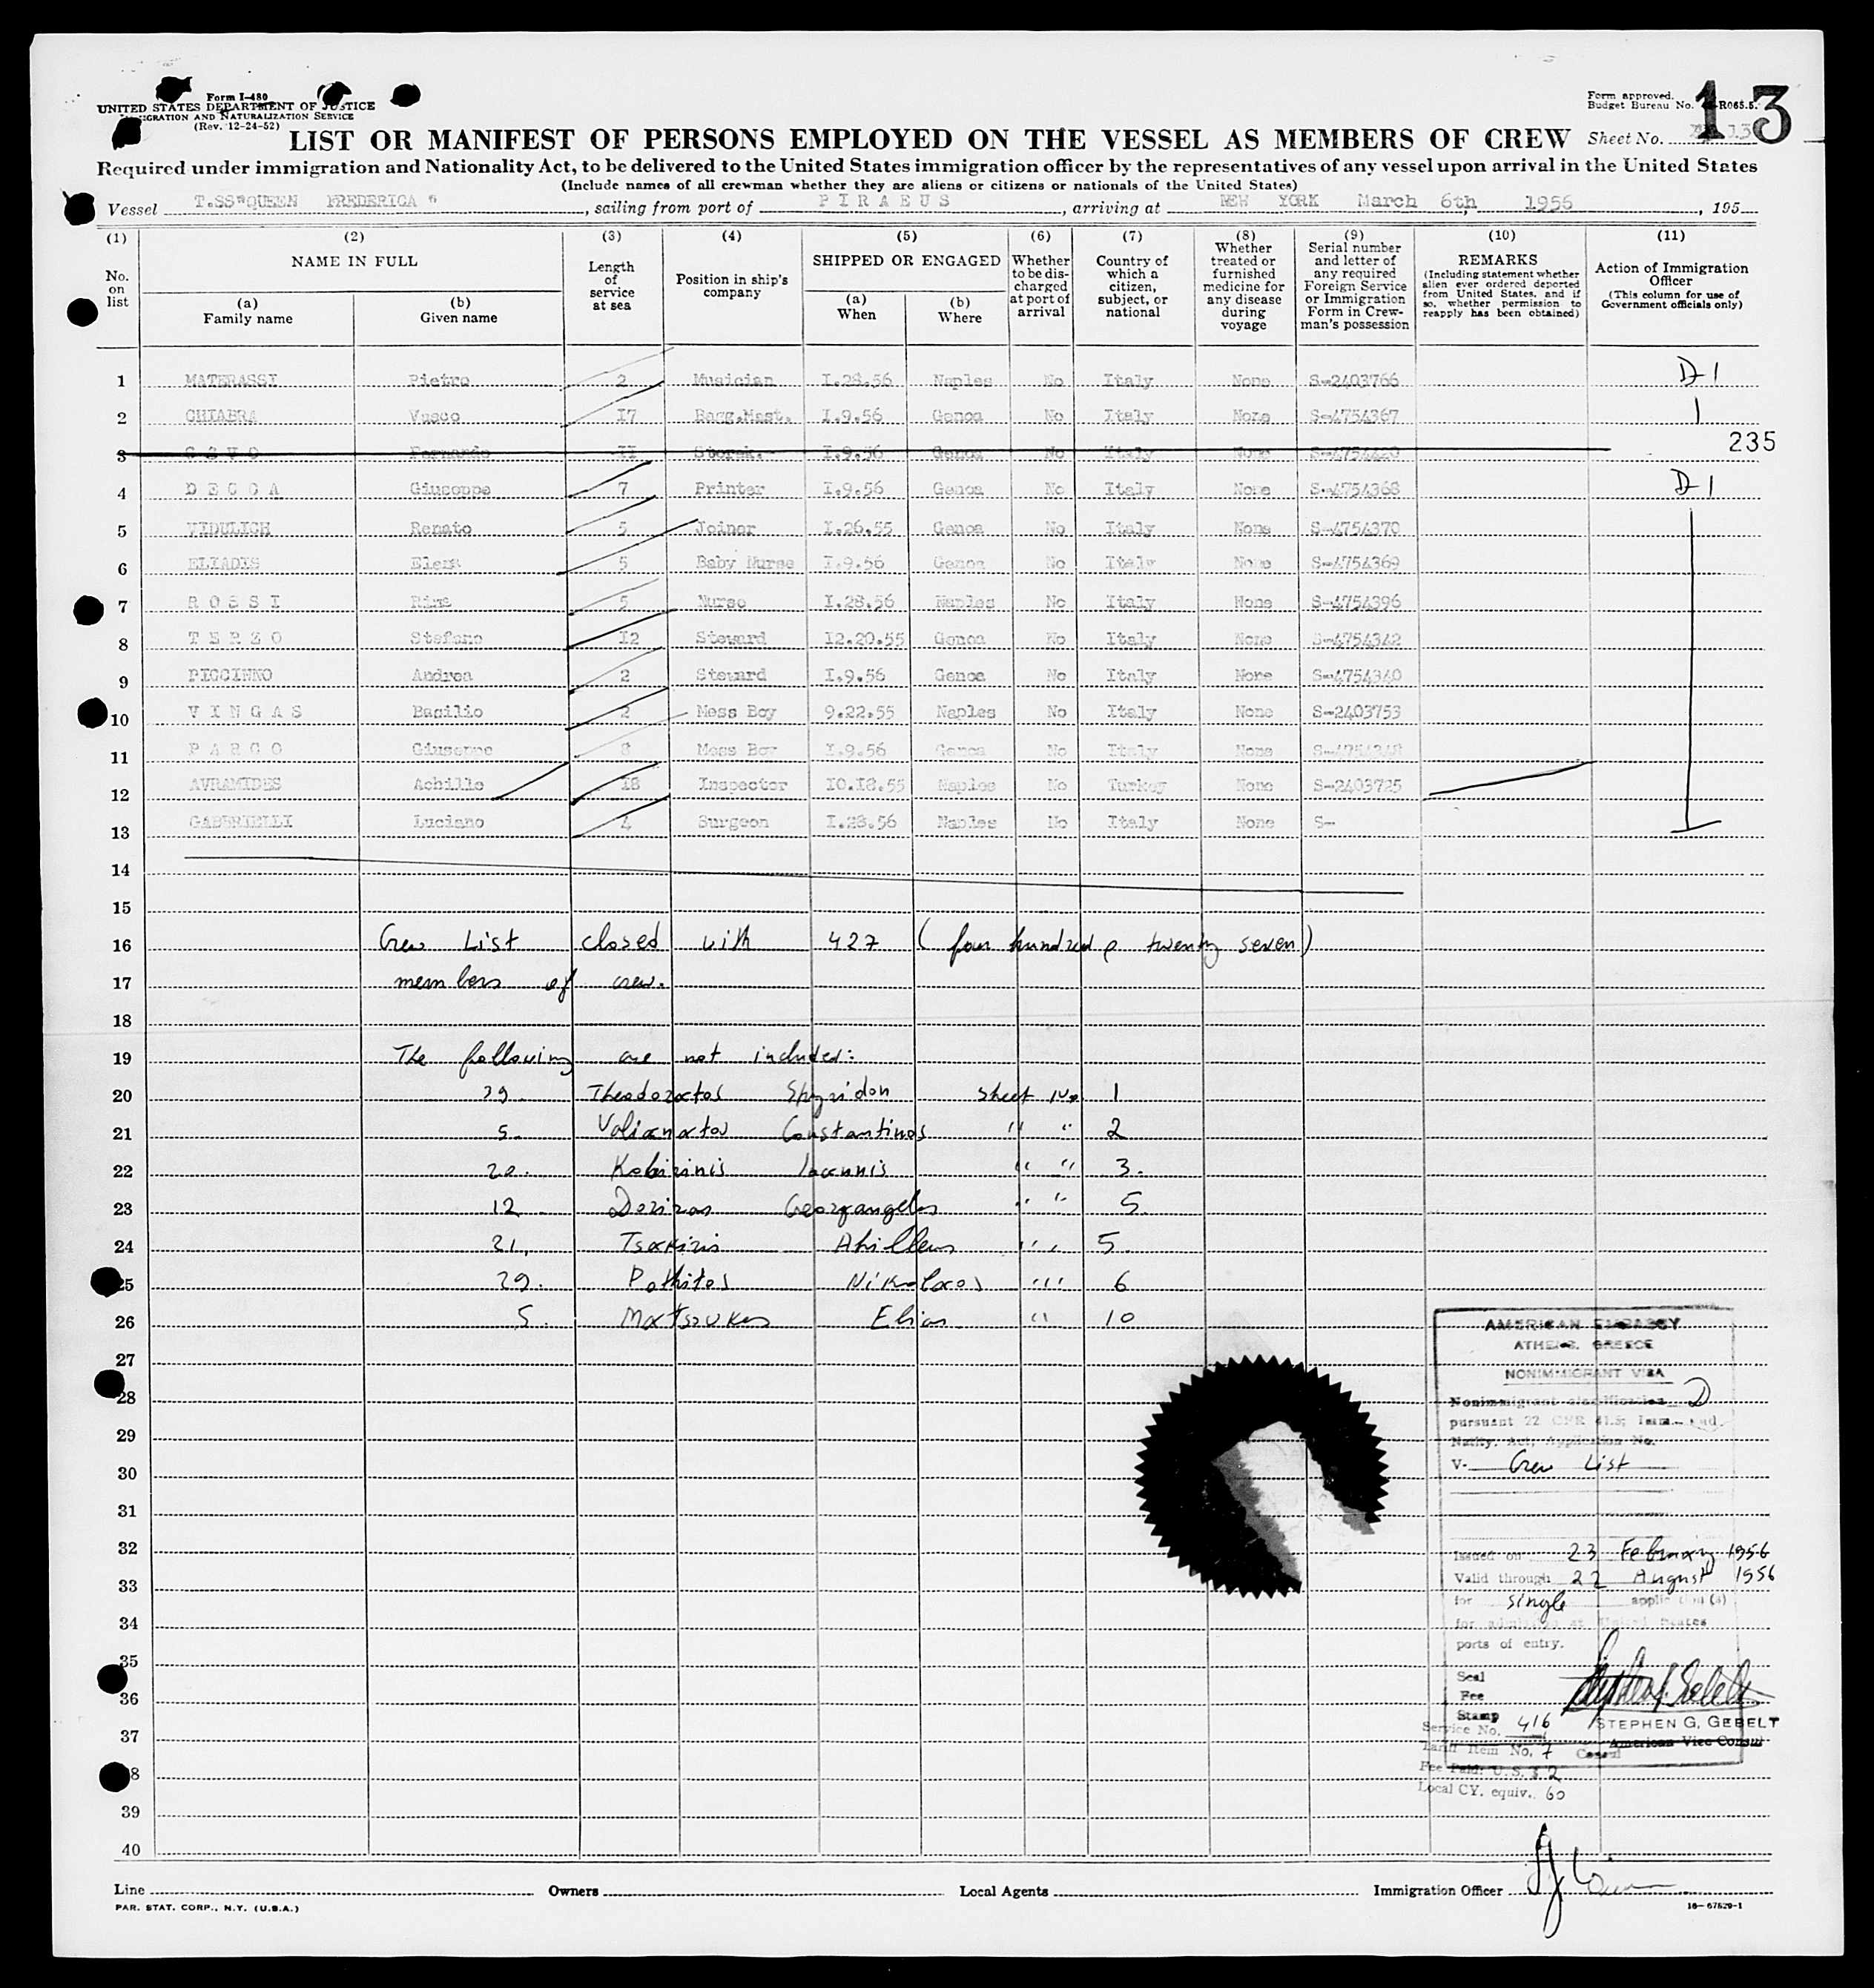 Form I-480
UNITED STATES DEPARTMENT OF JUSTICE
IMMIGRATION AND NATURALIZATION SERVICE
(Rev. 12-24-52)
Form approved.
Budget Bureau No. -R065.5.
13
LIST OR MANIFEST OF PERSONS EMPLOYED ON THE VESSEL AS MEMBERS OF CREW Sheet No. 13
Required under immigration and Nationality Act, to be delivered to the United States immigration officer by the representatives of any vessel upon arrival in the United States
(Include names of all crewman whether they are aliens or citizens or nationals of the United States)
Vessel T.SS"QUEEN FREDERICA ", sailing from port of PIRAEUS, arriving at NEW YORK March 6th, 1956, 195
(1) (2) (3) (4) (5) (6) (7) (8) (9) (10) (11)
No. on list
NAME IN FULL
(a) Family name
(b) Given name
Length of service at sea
Position in ship's company
SHIPPED OR ENGAGED
(a) When
(b) Where
Whether to be discharged at port of arrival
Country of which a citizen, subject, or national
Whether treated or furnished medicine for any disease during voyage
Serial number and letter of any required Foreign Service or Immigration Form in Crewman's possession
REMARKS
(Including statement whether alien ever ordered deported from United States, and if so, whether permission to reapply has been obtained)
Action of Immigration Officer
(This column for use of Government officials only)
1 MATERASSI Pietro 2 Musician 1.28.56 Naples No Italy None S-2403766 D-1
2 CHIABRA Vasco 17 Bagg.Mast. 1.9.56 Genoa No Italy None S-4754367 1
3 CEVO Fernando 11 Storek. 1.9.56 Genoa No Italy None S-4754420 235
4 DECCA Giuseppe 7 Printer 1.9.56 Genoa No Italy None S-4754368 D-1
5 VIDULICH Renato 5 Joiner 1.26.55 Genoa No Italy None S-4754370
6 ELIADIS Elena 5 Baby Nurse 1.9.56 Genoa No Italy None S-4754369
7 ROSSI Rina 5 Nurse 1.28.56 Naples No Italy None S-4754396
8 TERZO Stefano 12 Steward 12.20.55 Genoa No Italy None S-4754342
9 PICCINNO Andrea 2 Steward 1.9.56 Genoa No Italy None S-4754340
10 VINGAS Basilio 2 Mess Boy 9.22.55 Naples No Italy None S-2403753
11 PARCO Giuseppe 8 Mess Boy 1.9.56 Genoa No Italy None
12 AVRAMIDES Achille 18 Inspector 10.18.55 Naples No Turkey None S-2403725
13 GABBRIELLI Luciano 4 Surgeon 1.28.56 Naples No Italy None S-
14
15
16 Crew List closed with 427 (four hundred & twenty seven)
17 members of crew.
18
19 The following are not included:
20 29. Theodoractos Spyridon Sheet No 1
21 5. Valianatos Constantinos " " 2
22 20. Kabirinis Ioannis " " 3.
23 12 Deziras Georgangelos " " 5
24 21. Tsakiris Ahilleus " " 5.
25 29. Pothitos Nikolaos " " 6
26 5. Matsoukas Elias " 10
27
28
29
30
31
32
33
34
35
36
37
38
39
40
AMERICAN EMBASSY
ATHENS, GREECE
NONIMMIGRANT VISA
Nonimmigrant classification D
pursuant 22 CFR 41.5; Imm. and
Natity. Act, Application No.
V- Crew List
Issued on 23 February 1956
Valid through 22 August 1956
for single application(s)
for admission at United States
ports of entry.
Seal
Fee
Stamp
Service No. 416
STEPHEN G. GEBELT
Tariff Item No. 7 Consul American Vice Consul
Fee Paid: U.S. $ 2
Local CY. equiv. 60
Line Owners Local Agents Immigration Officer
PAR. STAT. CORP., N.Y. (U.S.A.)
16-67529-1